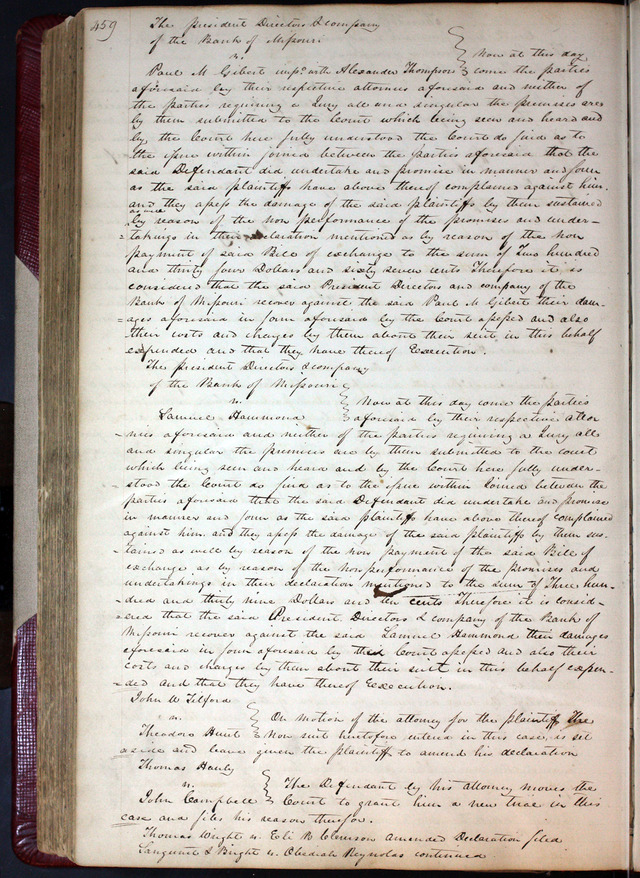 459
The president Directors & company
of the Bank of Missouri
vs.
Now at this day
Paul M Gibert impd. with Alexander Thompson come the parties
aforesaid by their respective attornies aforesaid and neither of
the parties requiring a Jury all and singular the premises are
by them submitted to the Court which being seen and heard and
by the Court here fully understood the Court do find as to
the issue within joined between the parties aforesaid that the
said Defendant did undertake and promise in manner and form
as the said plaintiffs have above thereof complained against him.
and they assess the damage of the said plaintiffs by them sustained
as well
by reason of the non performance of the promises and under-
-takings in their declaration mentioned as by reason of the non
payment of said Bill of exchange to the sum of Two hundred
and thirty four Dollars and sixty seven cents Therefore it is
considered that the said President Directors and company of the
Bank of Missouri recover against the said Paul M Gibert their dam-
-ages aforesaid in form aforesaid by the Court assessed and also
their costs and charges by them about their suit in this behalf
expended and that they have thereof Execution.
The president Directors & company
of the Bank of Missouri
vs.
Now at this day come the parties
Samuel Hammond aforesaid by their respective attor
-nies aforesaid and neither of the parties requiring a Jury all
and singular the premises are by them submitted to the court
which being seen and heard and by the Court here fully under-
-stood the Court do find as to the issue within Joined between the
parties aforesaid that the said Defendant did undertake and promise
in manner and form as the said plaintiffs have above thereof complained
against him. and they assess the damage of the said plaintiffs by them sus-
-tained as well by reason of the non payment of the said Bill of
exchange as by reason of the non performance of the promises and
undertakings in their declaration mentioned to the sum of Three hun-
-dred and thirty nine Dollars and ten cents Therefore it is consid-
-ered that the said President Directors & company of the Bank of
Missouri recover against the said Samuel Hammond their damages
aforesaid in form aforesaid by the Court assessed and also their
costs and charges by them about their suit in this behalf expen-
-ded and that they have thereof Execution.
John W Tilford
vs.
On motion of the attorney for the plaintiff The
Theodore Hunt Non suit heretofore entered in this case, is set
aside and leave given the plaintiff to amend his declaration
Thomas Hanly
vs.
The Defendant by his attorney moves the
John Campbell Court to grant him a new trial in this
case and files his reason therefor.
Thomas Wright vs. Eli B Clemson amended Declaration filed
& Bright vs. Obediah Reynolds continued